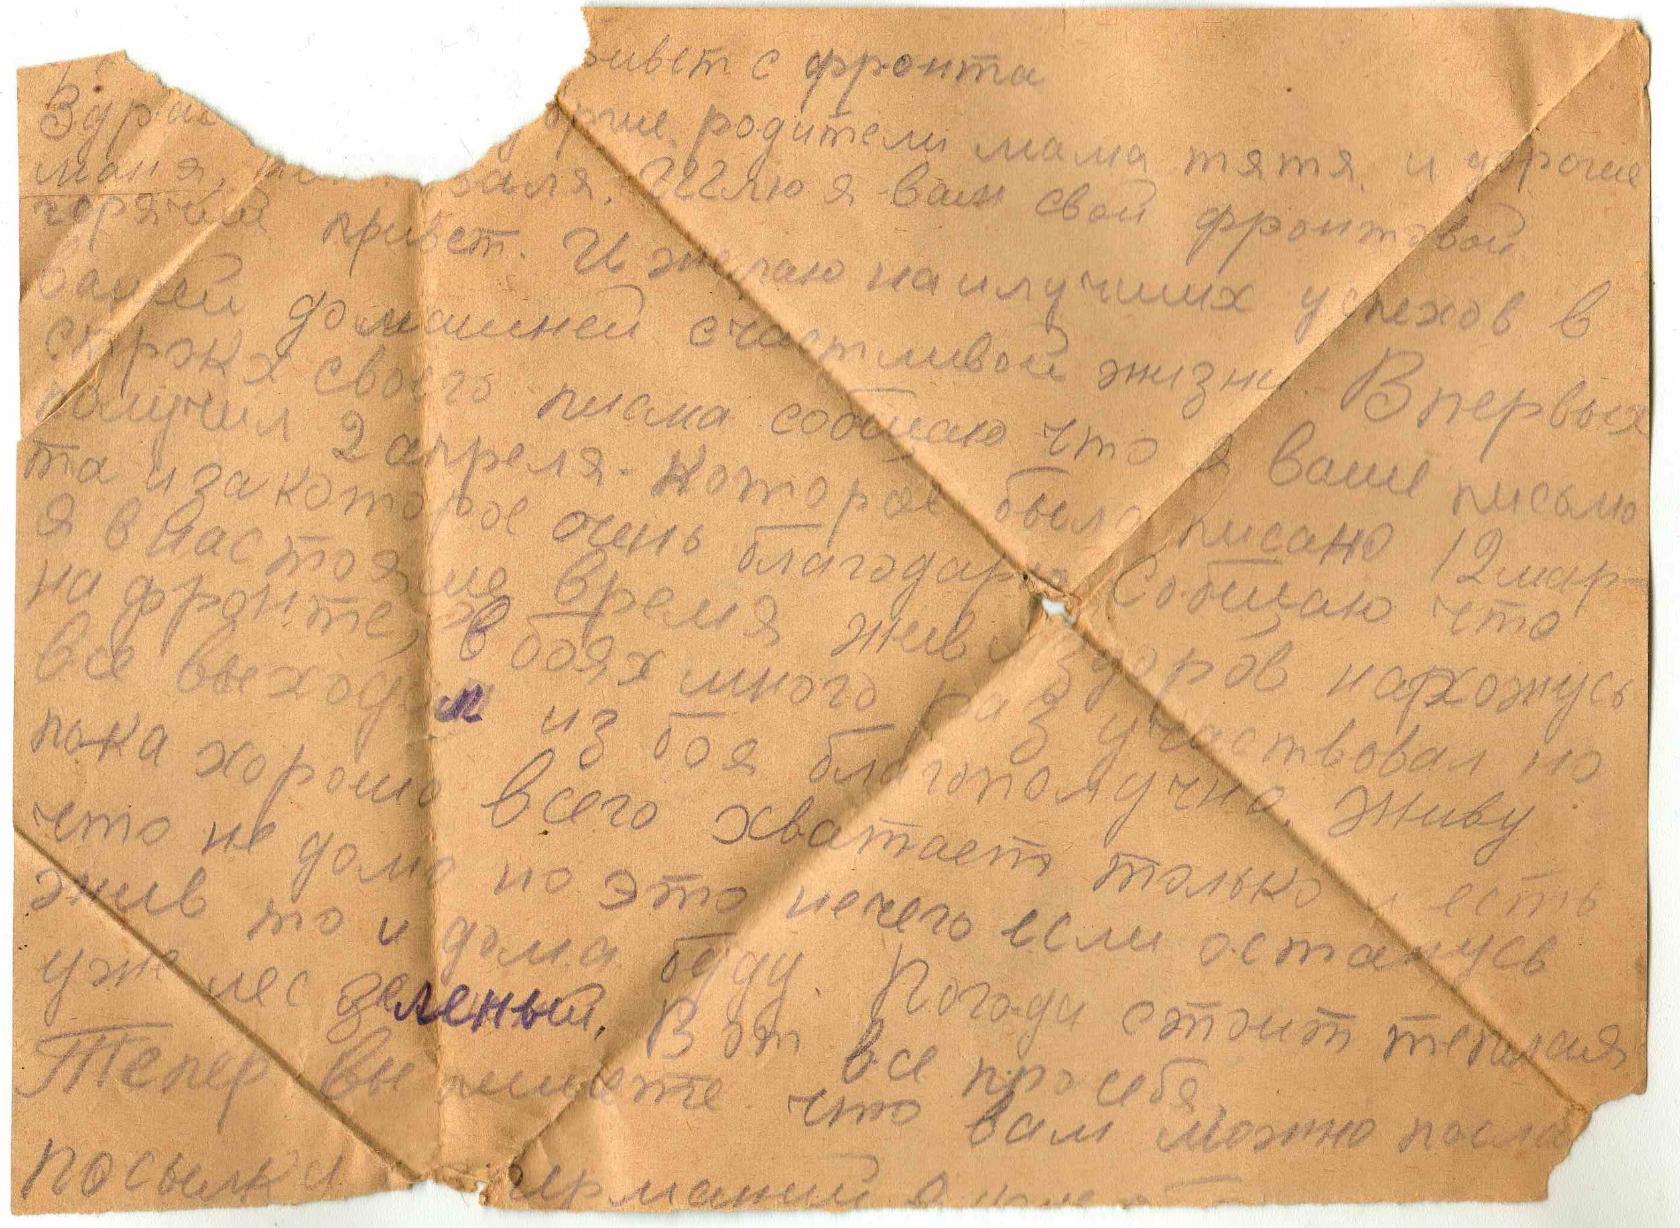 привет с фронта
Здрав дорогие родители мама тятя. и дорогие
маня, валя. Шлю я вам свой фронтовой
горячий привет. И желаю наилучших успехов в
вашей домашней счастливой жизни. Впервых
строках своего писма собщаю что я ваше письмо
получил 2 апреля. Которое было писано 12 мар-
та и за которое очень благодарю Собщаю что
я внастоящие время жив и здоров нархожусь
на фронте, в боях много раз участвовал но
все выходил из боя благополучно. Живу
пока хорошо всего хватает только и есть
что не дома но это нечего если останусь
жив то и дома буду. Погода стоит теплая
уже лес зеленый. Вот все про себя.
Тепер вы пишете что вам можно посла
посылки германий я